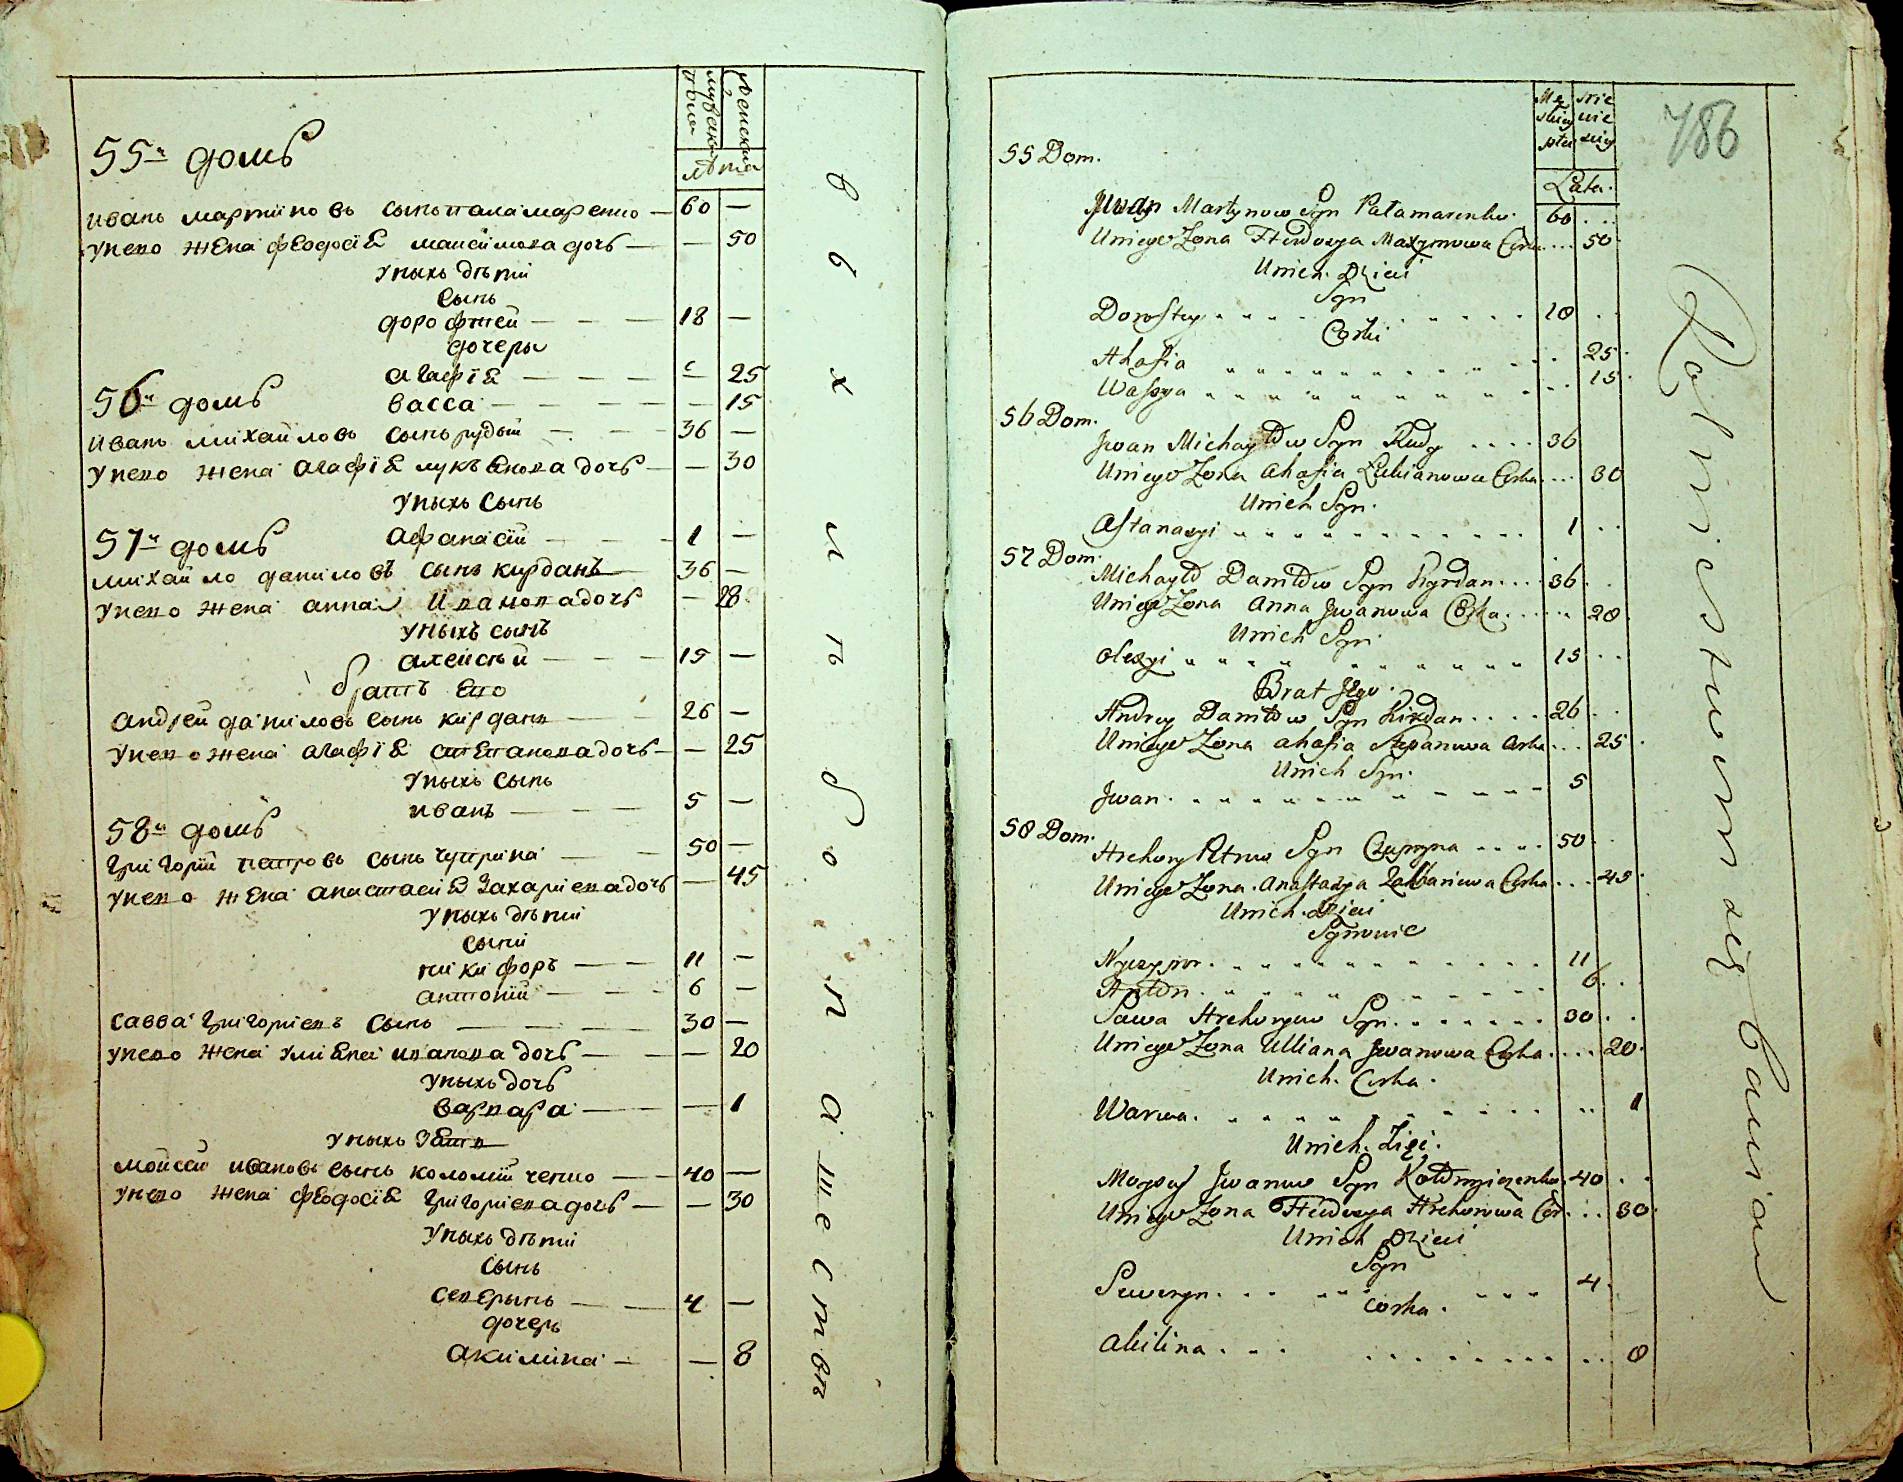 мужеска пола
женска
лѣта
55й домъ
иванъ мартиновъ сынъ паламаренко — 60 —
унево жена феодосіѧ максимова дочь — — 50
унихъ дѣти
сынъ
дорофтей — — — 18 —
дочеры
агафіѧ — — — — — 25
васса — — — — — 15
56й домъ
иванъ михайловъ сынъ рудый — — 36 —
унево жена агафіѧ лукьѧнова дочь — — 30
унихъ сынъ
афанасій — — — 1 —
57й домъ
михайло даниловъ сынъ кирданъ — 36 —
унево жена анна ивановадочь — 28
унихъ сынъ
алексѣй — — — 15 —
братъ его
андрей даниловъ сынъ кирданъ — — 26 —
унево жена агафіѧ степановадочь — — 25
унихъ сынъ
иванъ — — — 5 —
58й домъ
григорій петровъ сынъ чуприна — — 50 —
унево жена анастасиѧ захариевадочь — 45
унихъ дѣти
сыни
никифоръ — — 11 —
антоній — — — 6 —
савва григориевъ сынъ — — — — 30 —
унево жена улиѧна иванова дочь — — — 20
унихъ дочь
варвара — — — 1
унихъ зѧть
мойсей ивановъ сынъ коломійченко — — 40 —
унево жена феодосіѧ григориевадочь — — 30
унихъ дѣти
сынъ
северынъ — — 4 —
дочерь
акилина — — 8
Męskiey płci
Lata.
786
55 Dom.
Jwan Martynow Syn Pałamarenko. 60 . .
Uniego Zona Fteodozya Maxymowa Corka ... 50
Unich Dzieci
Syn
Doroftey 18 . .
Corki
Ahafia 25
Wassya 15
56 Dom.
Jwan Michayłow Syn Rudy .... 36
Uniego Zona Ahafia Łukianowa Corka ... 30
Unich Syn.
Aftanazyi 1 . .
57 Dom.
Michayło Daniłow Syn Kyrdan .... 36 . .
Uniego Zona Anna Jwanowa Corka ..... 28
Unich Syn
Olexyi 15 . .
Brat Jego.
Andrey Daniłow Syn Kirdan .... 26 . .
Uniego Zona Ahafia Stepanowa Corka ... 25
Unich Syn.
Jwan 5
58 Dom.
Hrehory Petrow Syn Czupryna .... 50 . .
Uniego Zona. Anastazya Zachariewa Corka ... 45
Unich. Dzieci
Synowie
Nyczypor 11
Anton 6 . .
Sawa Hrehoryew Syn 30 . .
Uniego Zona Ulliana Jwanowa Corka .... 20
Unich. Corka.
Warwa 1
Unich. Zięć.
Moysey Jwanow Syn Kołomyiczenko. 40 . .
Uniego Zona Fteodozya Hrehorowa Cor. ... 30
Unich Dzieci
Syn
Seweryn 4
Corka.
Akilina 8